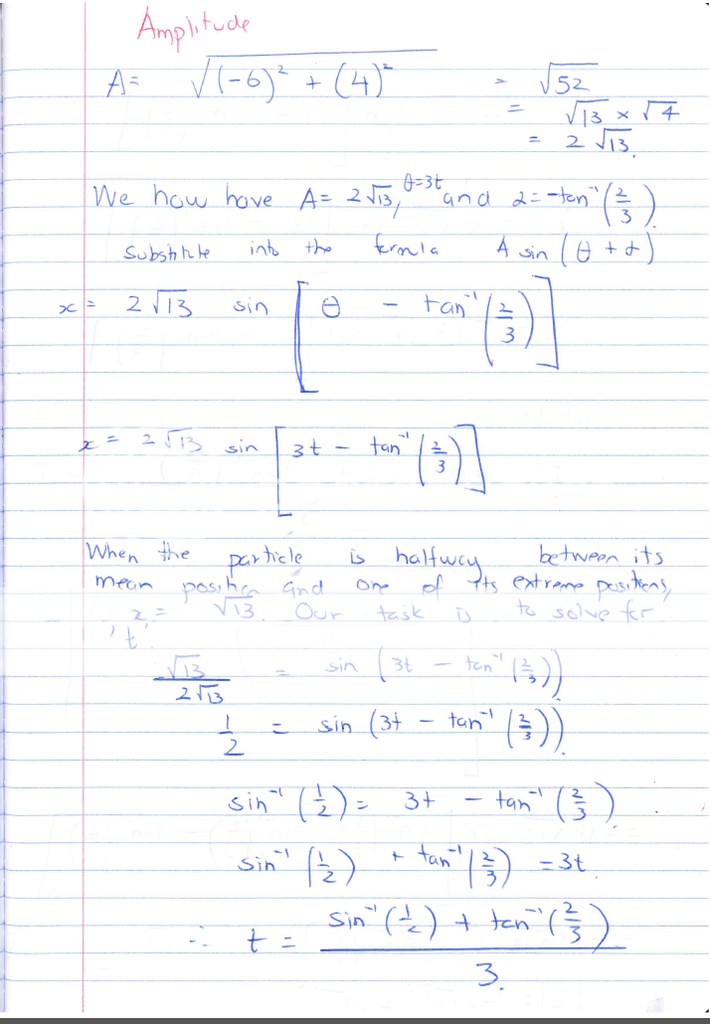 Amplitude
A= √((-6)² + (4)²) = √52
= √13 × √4
= 2√13.
We how have A= 2√13, θ=3t and α=-tan⁻¹(2/3).
Substitute into the formula A sin(θ+α)
x= 2√13 sin [θ - tan⁻¹(2/3)]
x= 2√13 sin [3t - tan⁻¹(2/3)]
When the particle is halfway between its
mean position and one of its extreme positions,
x= √13. Our task is to solve for
't'.
√13/2√13 = sin (3t - tan⁻¹(2/3)).
1/2 = sin (3t - tan⁻¹(2/3)).
sin⁻¹(1/2)= 3t - tan⁻¹(2/3).
sin⁻¹(1/2) + tan⁻¹(2/3) =3t.
∴ t= (sin⁻¹(1/2) + tan⁻¹(2/3))/3.